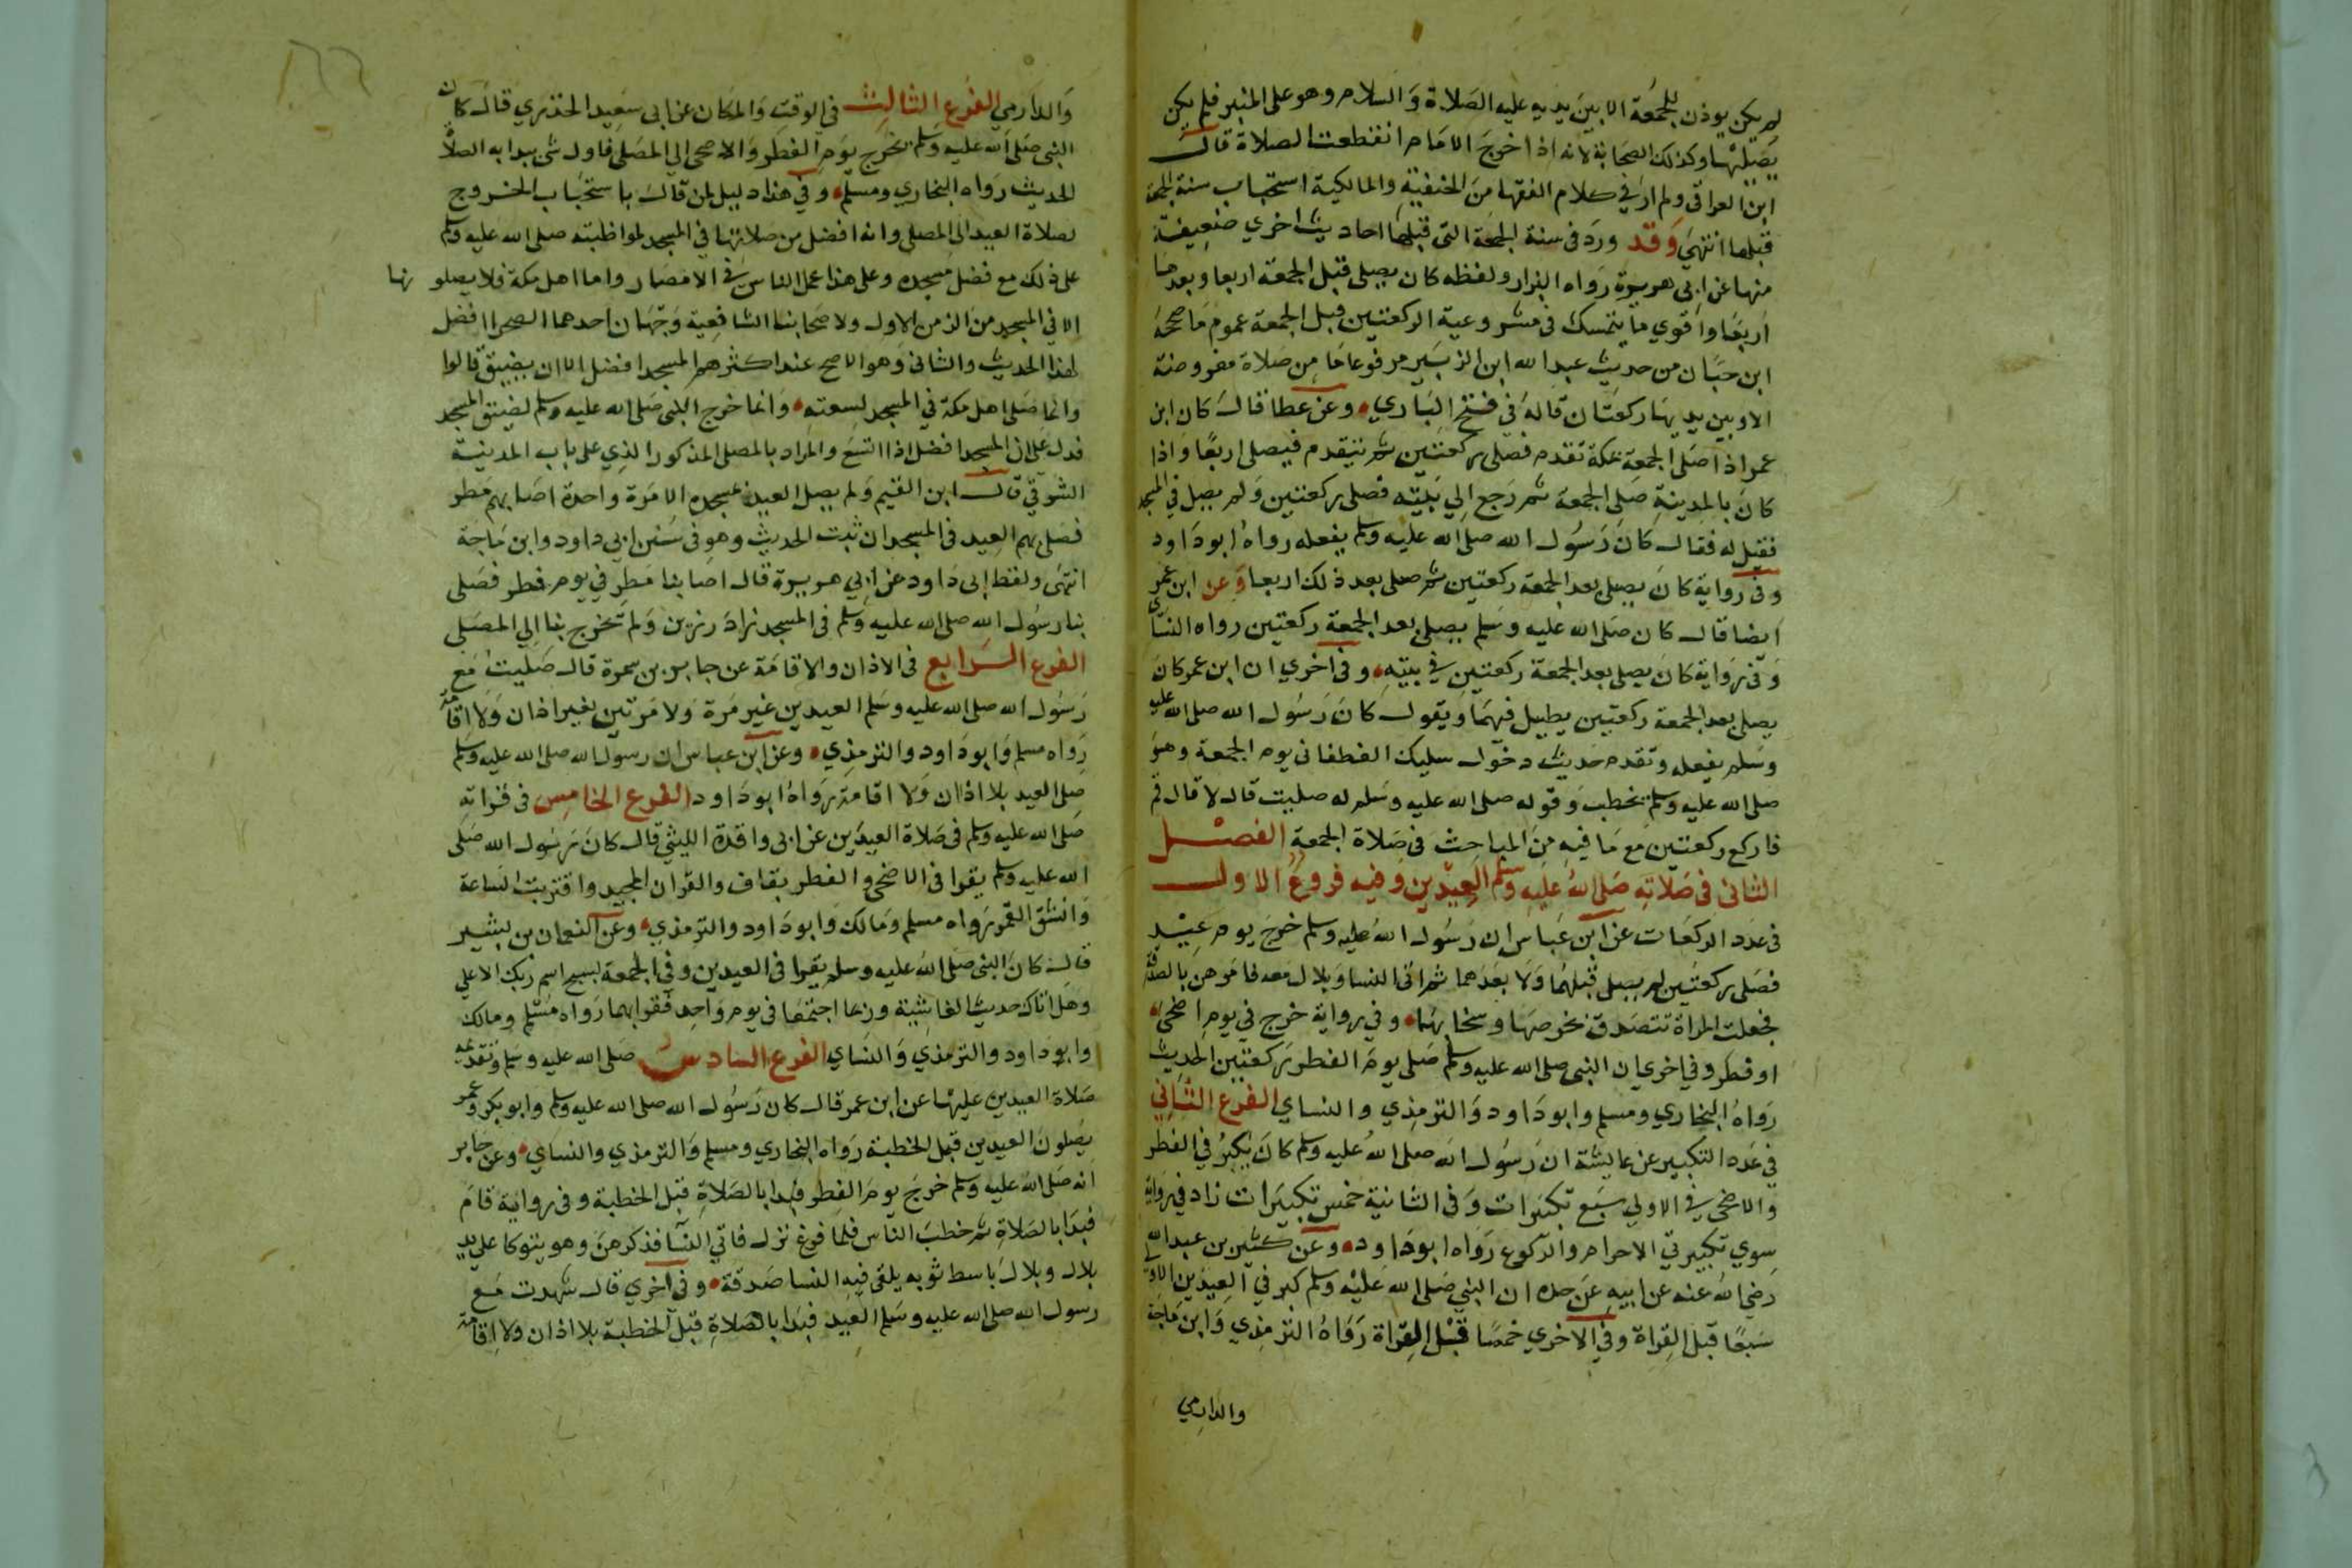 لم يكن يوذن للجمعة الا بين يديه عليه الصلاة والسلام وهو على المنبر فلم يكن
يصليها وكذلك الصحابة لانه اذا خرج الامام انقطعت الصلاة قال
ابن العراقي ولم ار في كلام الفقها من الحنفية والمالكية استحباب سنة الجمعة
قبلها انتهى وقد ورد في سنة الجمعة التي قبلها احاديث اخري ضعيفة
منها عن ابي هريرة رواه البزار ولفظه كان يصلي قبل الجمعة اربعا وبعدها
اربعا واقوي ما يتمسك في مشروعية الركعتين قبل الجمعة عموم ما صححه
ابن حبان من حديث عبد الله ابن الزبير مرفوعا ما من صلاة مفروضة
الا وبين يديها ركعتان قاله في فتح الباري وعن عطا قال كان ابن
عمر اذا صلى الجمعة بمكة تقدم فصلى ركعتين ثم يتقدم فيصلى اربعا واذا
كان بالمدينة صلى الجمعة ثم رجع الي بيته فصلى ركعتين ولم يصل في المسجد
فقيل له فقال كان رسول الله صلى الله عليه وسلم يفعله رواه ابو داود
وفي رواية كان يصلي بعد الجمعة ركعتين ثم صلى بعد ذلك اربعا وعن ابن عمر
ايضا قال كان صلى الله عليه وسلم يصلي بعد الجمعة ركعتين رواه النساي
وفي رواية كان يصلي بعد الجمعة ركعتين في بيته وفي اخري ان ابن عمر كان
يصلي بعد الجمعة ركعتين يطيل فيهما ويقول كان رسول الله صلى الله عليه
وسلم يفعله وتقدم حديث دخول سليك الغطفاني يوم الجمعة وهو
صلى الله عليه وسلم يخطب وقوله صلى الله عليه وسلم له صليت قال لا قال قم
فاركع ركعتين مع ما فيه من المباحث في صلاة الجمعة الفصل
الثاني في صلاته صلى الله عليه وسلم العيدين وفيه فروع الاول
في عدد الركعات عن ابن عباس ان رسول الله صلى الله عليه وسلم خرج يوم عيد
فصلى ركعتين لم يصل قبلهما ولا بعدهما ثم اتى النسا وبلال معه فامرهن بالصدقة
فجعلت المراة تتصدق بخرصها وسخابها وفي رواية خرج في يوم اضحى
او فطر وفي اخري ان النبي صلى الله عليه وسلم صلى يوم الفطر ركعتين الحديث
رواه البخاري ومسلم وابو داود والترمذي والنساي الفرع الثاني
في عدد التكبير عن عايشة ان رسول الله صلى الله عليه وسلم كان يكبر في الفطر
والاضحى في الاولى سبع تكبيرات وفي الثانية خمس تكبيرات زاد في رواية
سوي تكبيرتي الاحرام والركوع رواه ابو داود وعن كثير بن عبد الله
رضي الله عنه عن ابيه عن جده ان النبي صلى الله عليه وسلم كبر في العيدين الاولى
سبعا قبل القراة وفي الاخري خمسا قبل القراة رواه الترمذي وابن ماجة
والدارمي
والدارمي الفرع الثالث في الوقت والمكان عن ابي سعيد الخذري قال كان
النبي صلى الله عليه وسلم يخرج يوم الفطر والاضحى الي المصلى فاول شي يبدا به الصلاة
الحديث رواه البخاري ومسلم وفي هذا دليل لمن قال باستحباب الخروج
لصلاة العيد الى المصلى وانه افضل من صلاتها في المسجد لمواظبته صلى الله عليه وسلم
على ذلك مع فضل مسجده وعلى هذا عمل الناس في الامصار واما اهل مكة فلا يصلونها
الا في المسجد من الزمن الاول ولاصحابنا الشافعية وجهان احدهما الصحرا افضل
لهذا الحديث والثاني وهو الاصح عند اكثرهم المسجد افضل الا ان يضيق قالوا
وانما صلى اهل مكة في المسجد لسعته وانما خرج النبي صلى الله عليه وسلم لضيق المسجد
فدل على ان المسجد افضل اذا اتسع والمراد بالمصلى المذكور الذي على باب المدينة
الشرقي قال ابن القيم ولم يصل العيد بمسجده الا مرة واحدة اصابهم مطر
فصلى بهم العيد في المسجد ان ثبت الحديث وهو في سنن ابي داود وابن ماجة
انتهى ولفظ ابي داود عن ابي هريرة قال اصابنا مطر في يوم فطر فصلى
بنا رسول الله صلى الله عليه وسلم في المسجد زاد رزين ولم تخرج بنا الي المصلى
الفرع الرابع في الاذان والاقامة عن جابر بن سمرة قال صليت مع
رسول الله صلى الله عليه وسلم العيدين غير مرة ولا مرتين بغير اذان ولا اقامة
رواه مسلم وابو داود والترمذي وعن ابن عباس ان رسول الله صلى الله عليه وسلم
صلى العيد بلا اذان ولا اقامة رواه ابو داود الفرع الخامس في قراته
صلى الله عليه وسلم في صلاة العيدين عن ابي واقدة الليثي قال كان رسول الله صلى
الله عليه وسلم يقرا في الاضحى والفطر بقاف والقران المجيد واقتربت الساعة
وانشق القمر رواه مسلم ومالك وابو داود والترمذي وعن النعمان بن بشير
قال كان النبي صلى الله عليه وسلم يقرا في العيدين وفي الجمعة بسبح اسم ربك الاعلي
وهل اتاك حديث الغاشية وربما اجتمعا في يوم واحد فقرا بهما رواه مسلم ومالك
وابو داود والترمذي والنساي الفرع السادس صلى الله عليه وسلم وتقديمه
صلاة العيدين عليها عن ابن عمر قال كان رسول الله صلى الله عليه وسلم وابو بكر وعمر
يصلون العيدين قبل الخطبة رواه البخاري ومسلم والترمذي والنساي وعن جابر
انه صلى الله عليه وسلم خرج يوم الفطر فبدا بالصلاة قبل الخطبة وفي رواية قام
فبدا بالصلاة ثم خطب الناس فلما فرغ نزل فاتي النسا فذكرهن وهو يتوكا على يد
بلال وبلال باسط ثوبه يلقى فيه النسا صدقة وفي اخري قال شهدت مع
رسول الله صلى الله عليه وسلم العيد فبدا بالصلاة قبل الخطبة بلا اذان ولا اقامة